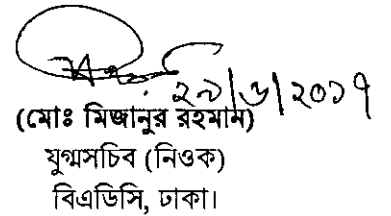 ২৯/৩/২০১৭
(মোঃ মিজানুর রহমান)
যুগ্মসচিব (নিওক)
বিএডিসি, ঢাকা।